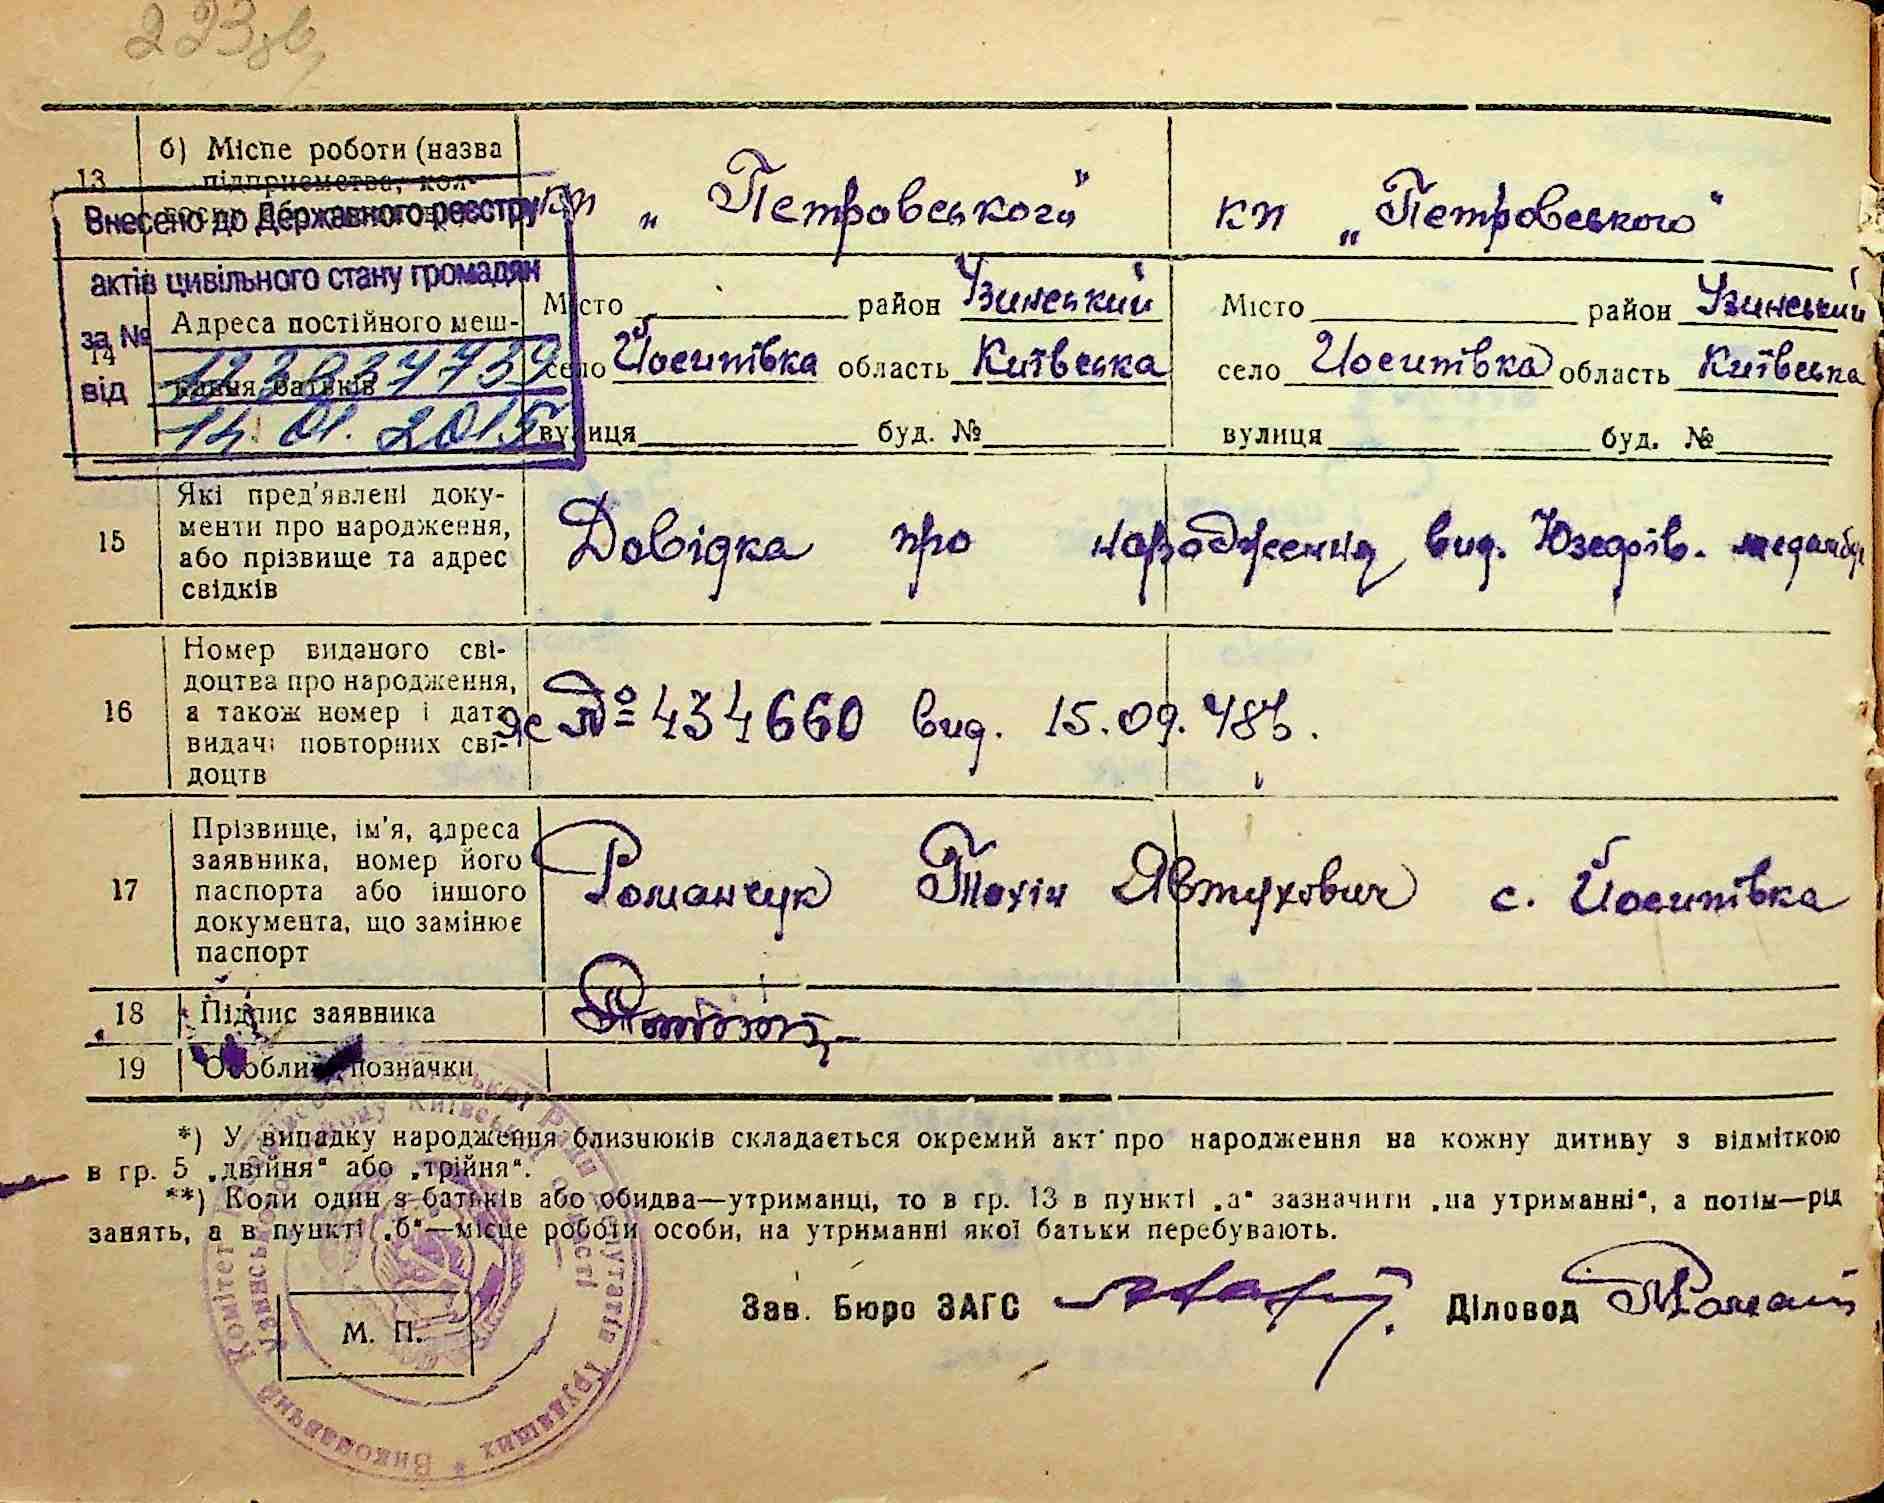 223зв
б) Місце роботи (назва
13 підприємства, кол-
кп „Петровського" кп „Петровського"
Внесено до Державного реєстру
актів цивільного стану громадян
за №
від 14.01.2015
14 Адреса постійного меш-
кання батьків
Місто район Узинський Місто район Узинський
село Йосипівка область Київська село Йосипівка область Київська
вулиця буд. № вулиця буд. №
15 Які пред'явлені доку-
менти про народження,
або прізвище та адрес
свідків
Довідка про народження вид. Юзефів.
16 Номер виданого сві-
доцтва про народження,
а також номер і дата
видачі повторних сві-
доцтв
№ 434660 вид. 15.09.48р.
17 Прізвище, ім'я, адреса
заявника, номер його
паспорта або іншого
документа, що замінює
паспорт
Романчук Явтухович с. Йосипівка
18 Підпис заявника
19 Особливі позначки
*) У випадку народження близнюків складається окремий акт про народження на кожну дитину з відміткою
в гр. 5 „двійня" або „трійня".
**) Коли один з батьків або обидва—утриманці, то в гр. 13 в пункті „а" зазначити „на утриманні", а потім—рід
занять, а в пункті „б"—місце роботи особи, на утриманні якої батьки перебувають.
Зав. Бюро ЗАГС Діловод
М. П.
Виконавчий Комітет Ради депутатів трудящих
Київської області